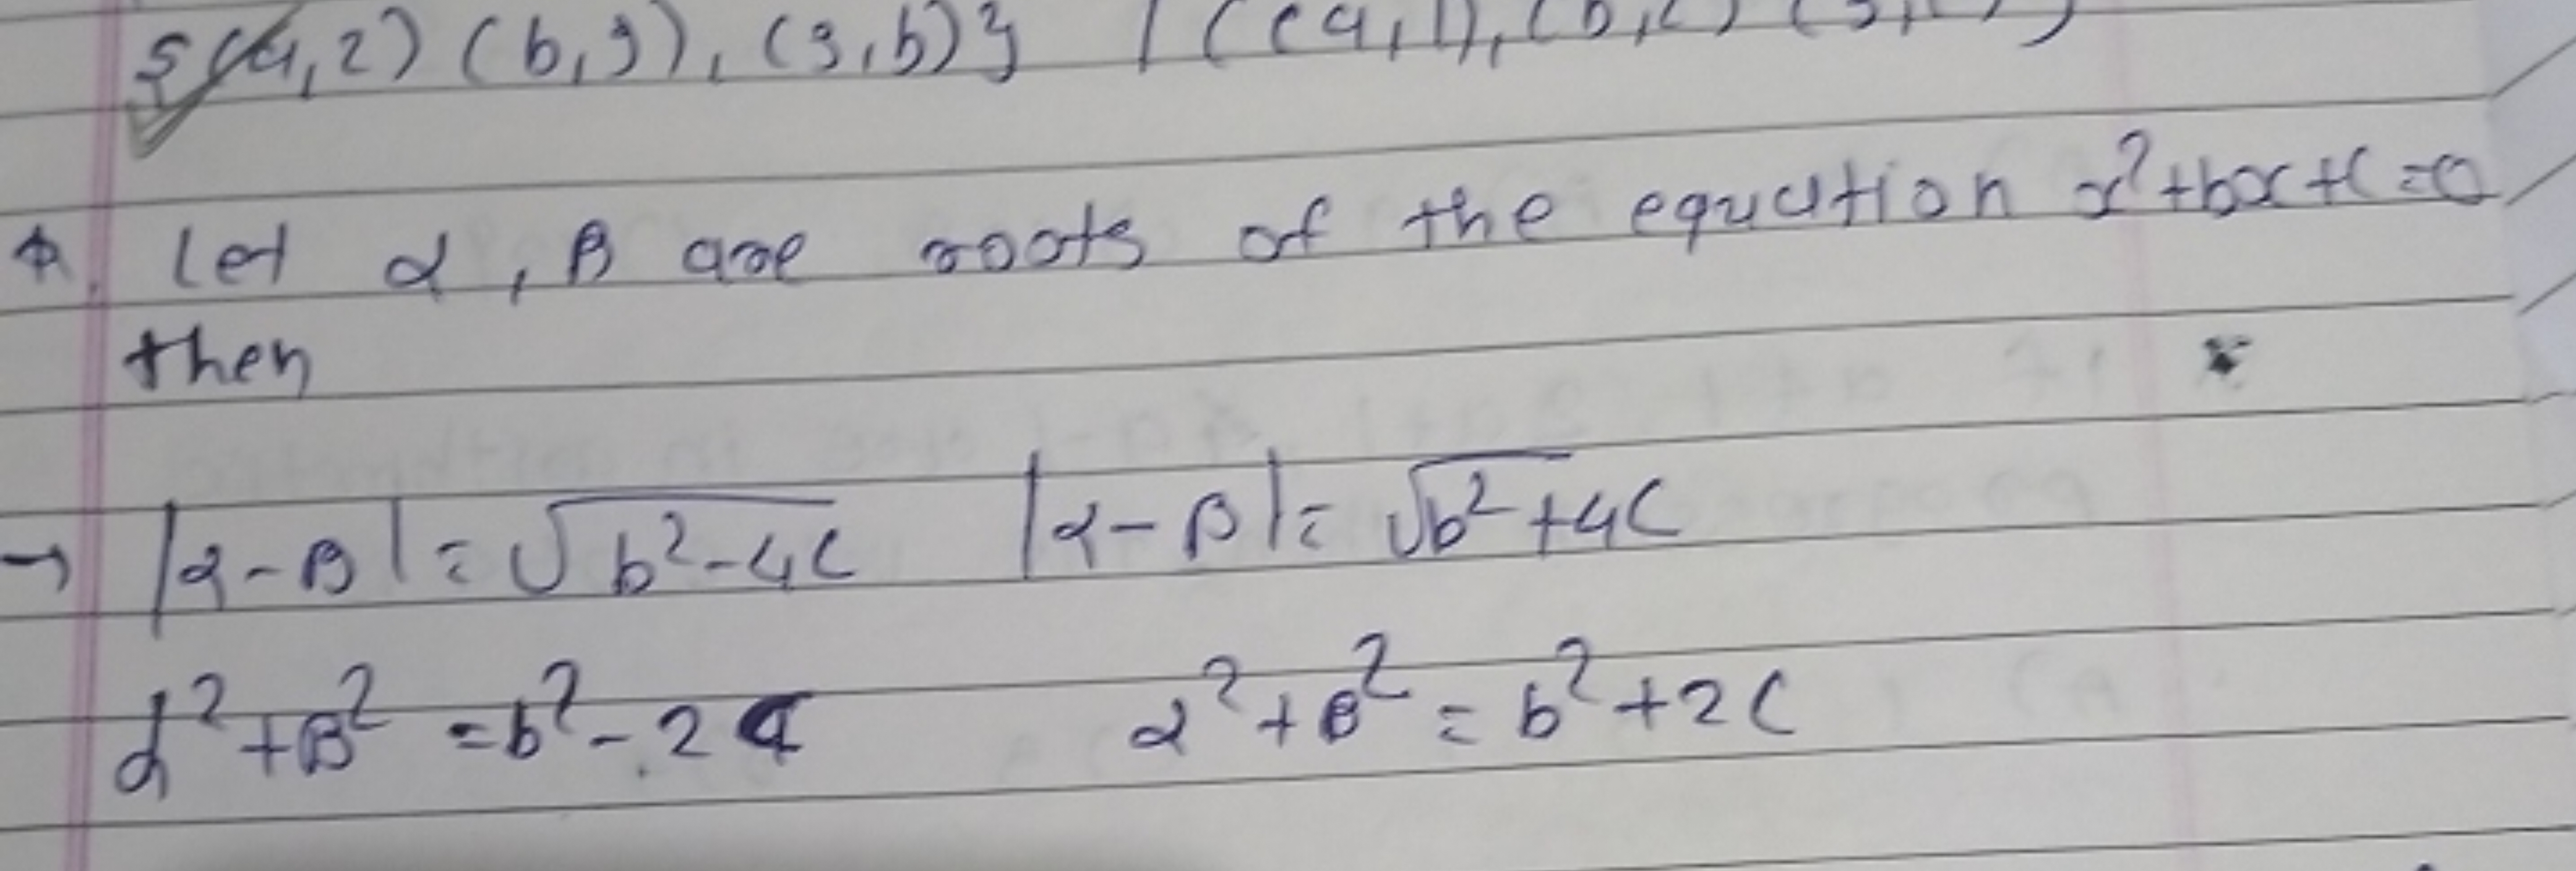 {(a,2) (b,3), (3,b)}
Let α, β are roots of the equation x²+bx+c=0
then
→ |α-β| = √b²-4c |α-β| = √b²+4c
α²+β² = b²-2c α²+β² = b²+2c